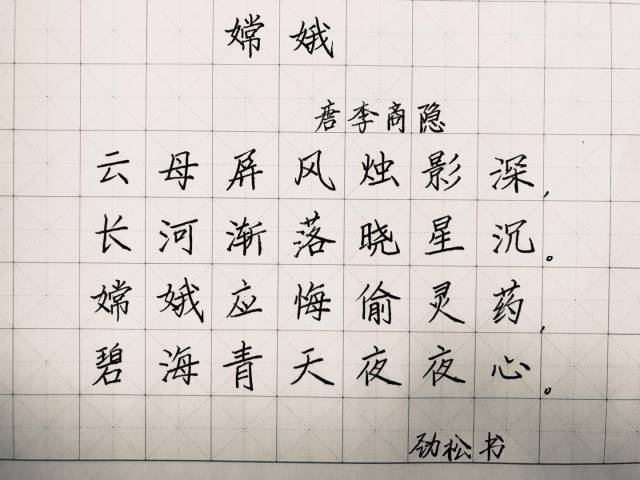 嫦娥
唐李商隐
云母屏风烛影深,
长河渐落晓星沉。
嫦娥应悔偷灵药,
碧海青天夜夜心。
劲松书